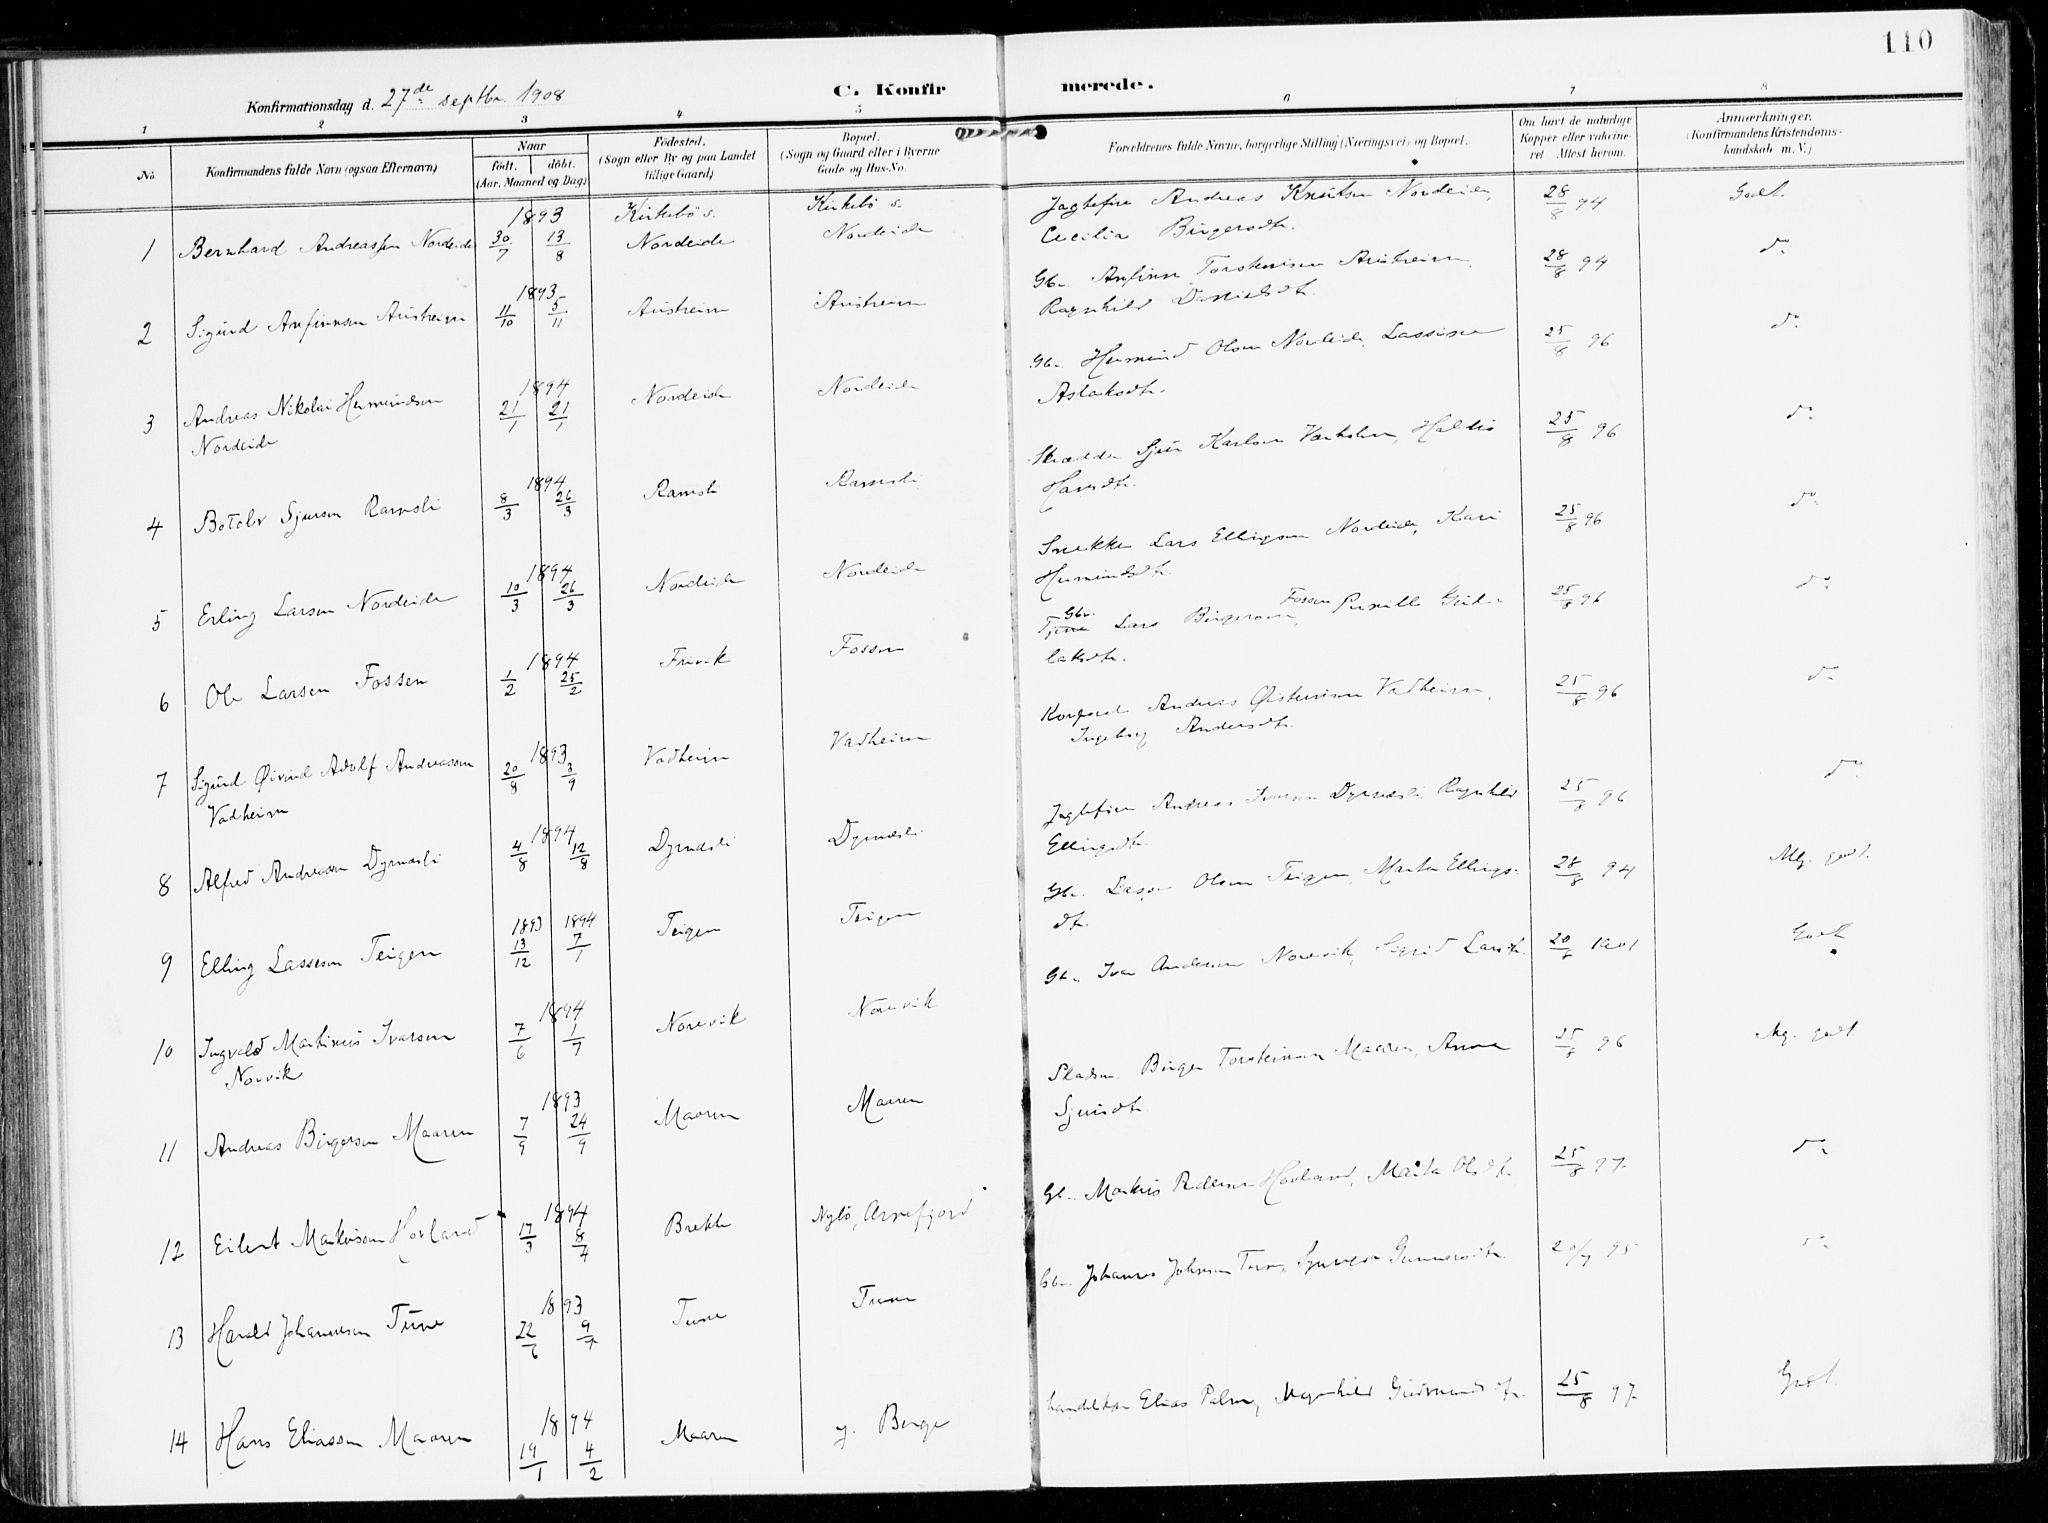 110
Konfirmationsdag d. 27de septbr. 1908
C. Konfirmerede.
1 2 3 4 5 6 7 8
No.
Konfirmandens fulde Navn (ogsaa Efternavn)
Naar
født. døbt.
(Aar, Maaned og Dag)
Fødested.
(Sogn eller By og paa Landet
tillige Gaard)
Bopæl.
(Sogn og Gaard eller i Byerne
Gade og Hus-No.
Forældrenes fulde Navne, borgerlige Stilling (Næringsvei) og Bopæl.
Om havt de naturlige
Kopper eller vakcine-
ret Attest herom.
Anmærkninger.
(Konfirmandens Kristendoms-
kundskab m. V.)
1 Bernhard Andreassen Nordeide 1893 30/7 13/8 Kirkebø s. Nordeide Kirkebø s. Nordeide Jagtefører Andreas Knutsen Nordeide, 28/8 94 Godt.
Cecilia Birgersdtr.
2 Sigurd Anfinnsen Austreim 1893 11/10 5/11 Austreim Austreim Gbr. Anfinn Torsteinsen Austreim, 28/8 94 do
Ragnhild Danielsdtr.
3 Andreas Nikolai Hermundsen 1894 21/1 21/1 Nordeide Nordeide Gbr. Hermund Olsen Nordeide, 25/8 96 do
Nordeide Aslaksdtr.
4 Botolv Sjursen Ramsli 1894 8/3 26/3 Ramsli Ramsli Skrædder Sjur Karlsen 25/8 96 do
Hansdtr.
5 Erling Larsen Nordeide 1894 10/3 26/3 Nordeide Nordeide Snekker Lars Ellingsen Nordeide, Kari 25/8 96 do
Hermundsdtr.
6 Ole Larsen Fossen 1894 1/2 25/2 Frivik Fossen Gbr. Lars Birgersen Fossen, Pernille Gud- 25/8 96 do
laksdtr.
7 Sigurd Øivind Adolf Andreassen 1893 20/8 3/9 Vadheim Vadheim Korporal Andreas Øisteinsen Vadheim, 25/8 96 do
Vadheim Ingeborg Andersdtr.
8 Alfred Andreassen Dyrnæsli 1894 4/8 12/8 Dyrnæsli Dyrnæsli Jagtefører Andreas Ivarsen Dyrnæsli, Ragnhild 25/8 96 do
Ellingsdtr.
9 Elling Lassesen Teigen 1893 13/12 1894 7/1 Teigen Teigen Gbr. Lasse Olsen Teigen, Marta Ellings- 28/8 94 Mg. godt.
dtr.
10 Ingvald Martinius Ivarsen 1894 7/6 1/7 Norevik Norevik Gbr. Ivar Andersen Norevik, Sigrid Larsdtr. 1901 Godt
Norvik
11 Andreas Birgersen Maaren 1893 7/9 24/9 Maaren Maaren Pladsm. Birger Torsteinsen Maaren, Anna 25/8 96 Mg. godt
Sjursdtr.
12 Eilert Markusen Hovland 1894 17/3 8/4 Brekke Nybø, Arnefjord Gbr. Markus Pedersen Hovland, Marta Olsdtr. 25/8 97 do
13 Harald Johannesen Tune 1893 22/6 9/7 Tune Tune Gbr. Johannes Johnsen Tune, Synneva Gunnarsdtr. 95 do
14 Hans Eliassen Maaren 1894 19/1 4/2 Maaren y. Berge Handelskar Elias Palm, Magnhild Gudmundsdtr. 25/8 97 Godt.